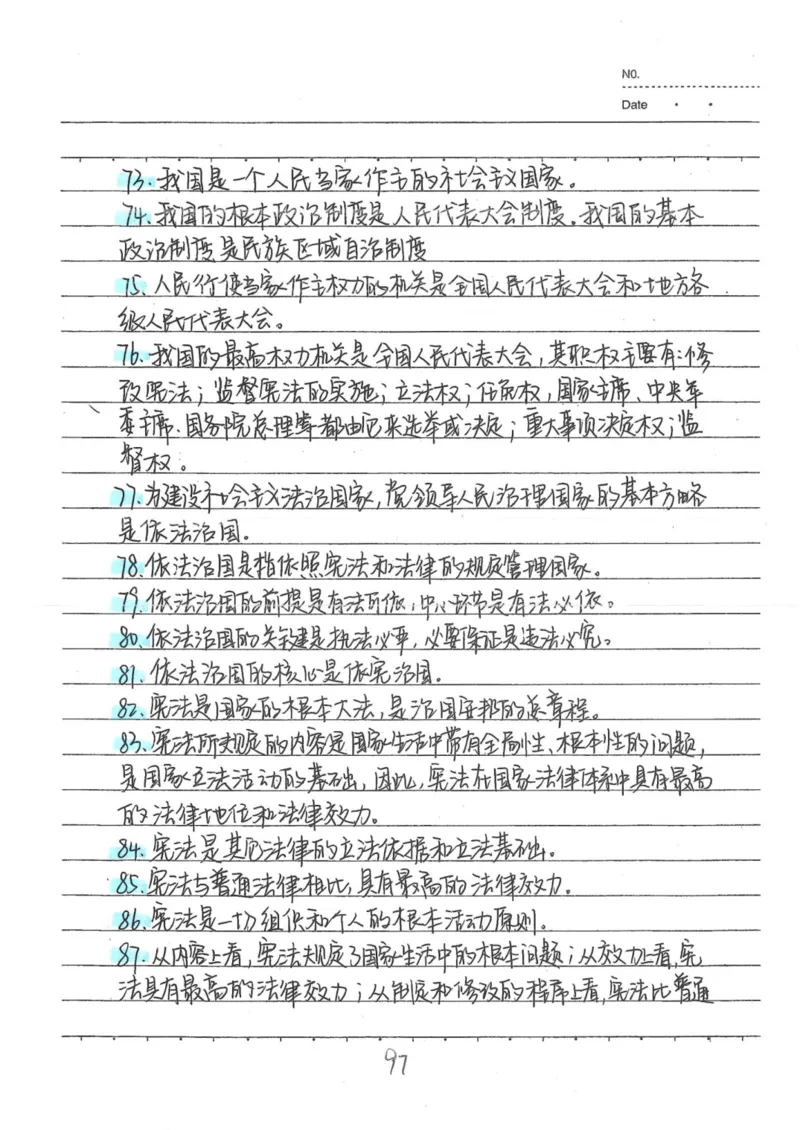 NO.
Date
73.我国是一个人民当家作主的社会主义国家。
74.我国的根本政治制度是人民代表大会制度。我国的基本
政治制度是民族区域自治制度
75、人民行使当家作主权力的机关是全国人民代表大会和地方各
级人民代表大会。
76、我国的最高权力机关是全国人民代表大会，其职权主要有：修
改宪法；监督宪法的实施；立法权；任免权，国家主席、中央军
委主席、国务院总理等都由它来选举或决定；重大事项决定权；监
督权。
77.为建设社会主义法治国家，党领导人民治理国家的基本方略
是依法治国。
78.依法治国是指依照宪法和法律的规定管理国家。
79.依法治国的前提是有法可依，中心环节是有法必依。
80.依法治国的关键是执法必严，必要保证是违法必究。
81.依法治国的核心是依宪治国。
82.宪法是国家的根本大法，是治国安邦的总章程。
83.宪法所规定的内容是国家生活中带有全局性、根本性的问题，
是国家立法活动的基础，因此，宪法在国家法律体系中具有最高
的法律地位和法律效力。
84.宪法是其它法律的立法依据和立法基础。
85.宪法与普通法律相比，具有最高的法律效力。
86.宪法是一切组织和个人的根本活动原则。
87.从内容上看，宪法规定了国家生活中的根本问题；从效力上看，宪
法具有最高的法律效力；从制定和修改的程序上看，宪法比普通
97